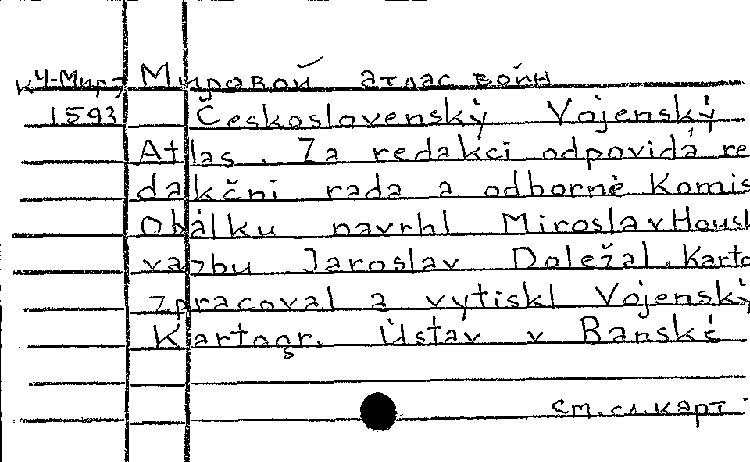 К4-Мир7 Мировой атлас войн
1593 Československý Vojenský
Atlas. Za redakci odpovidá re
dakčni rada a odborné Komis
Obálku navrhl Miroslav Housk
vazbu Jaroslav Doležal. Karto
zpracoval a vytiskl Vojenský
Kartogr. Ústav v Banské
см. сл. карт.